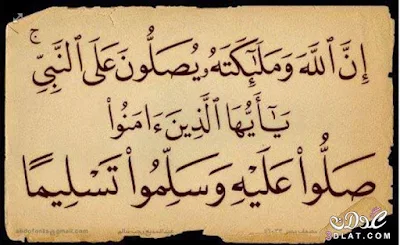 إِنَّ ٱللَّهَ وَمَلَٰٓئِكَتَهُۥ يُصَلُّونَ عَلَى ٱلنَّبِىِّ ۚ
يَٰٓأَيُّهَا ٱلَّذِينَ ءَامَنُوا۟
صَلُّوا۟ عَلَيْهِ وَسَلِّمُوا۟ تَسْلِيمًا
عدلات
3DLAT.COM